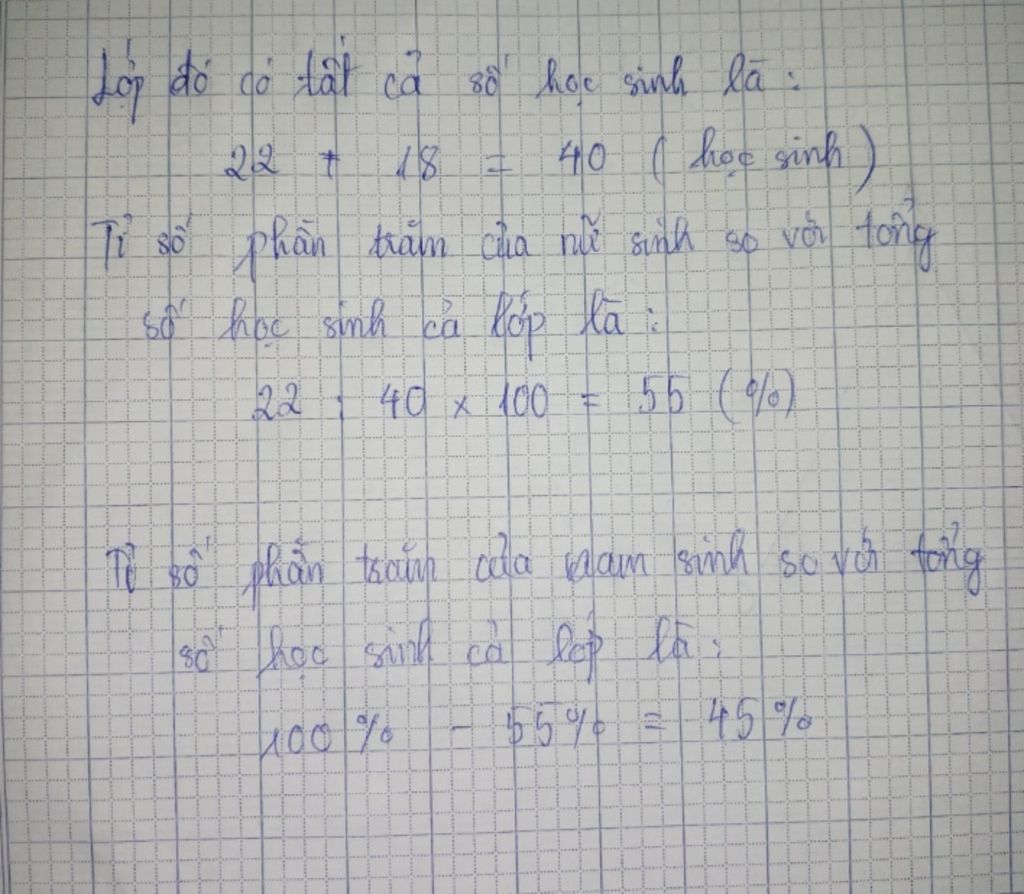 Lớp đó có tất cả số học sinh là :
22 + 18 = 40 ( học sinh )
Tỉ số phần trăm của nữ sinh so với tổng
số học sinh cả lớp là :
22 : 40 x 100 = 55 (%)
Tỉ số phần trăm của nam sinh so với tổng
số học sinh cả lớp là :
100 % - 55% = 45 %